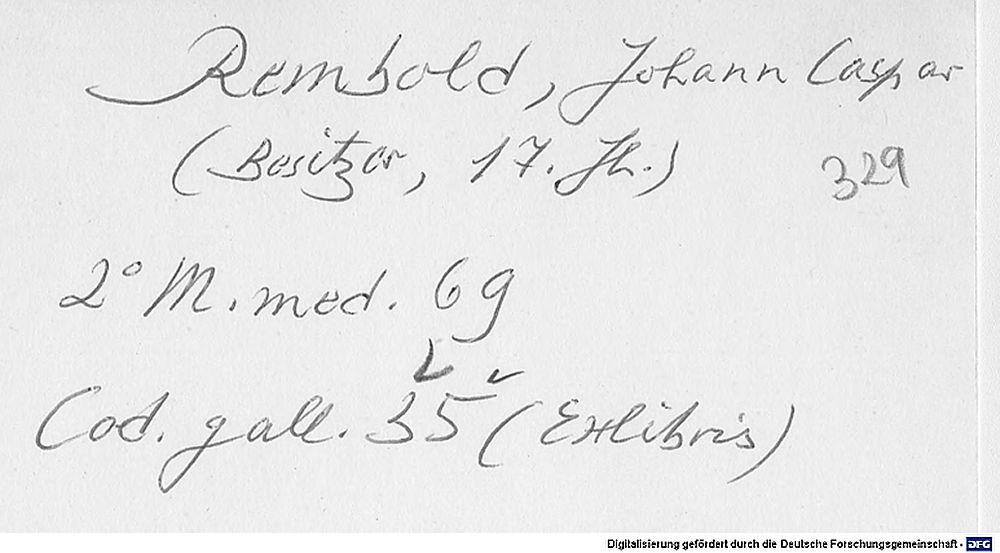 Rembold, Johann Caspar
(Besitzer, 17. Jh.)
329
2° M. med. 69
Cod. gall. 35 (Exlibris)
Digitalisierung gefördert durch die Deutsche Forschungsgemeinschaft - DFG